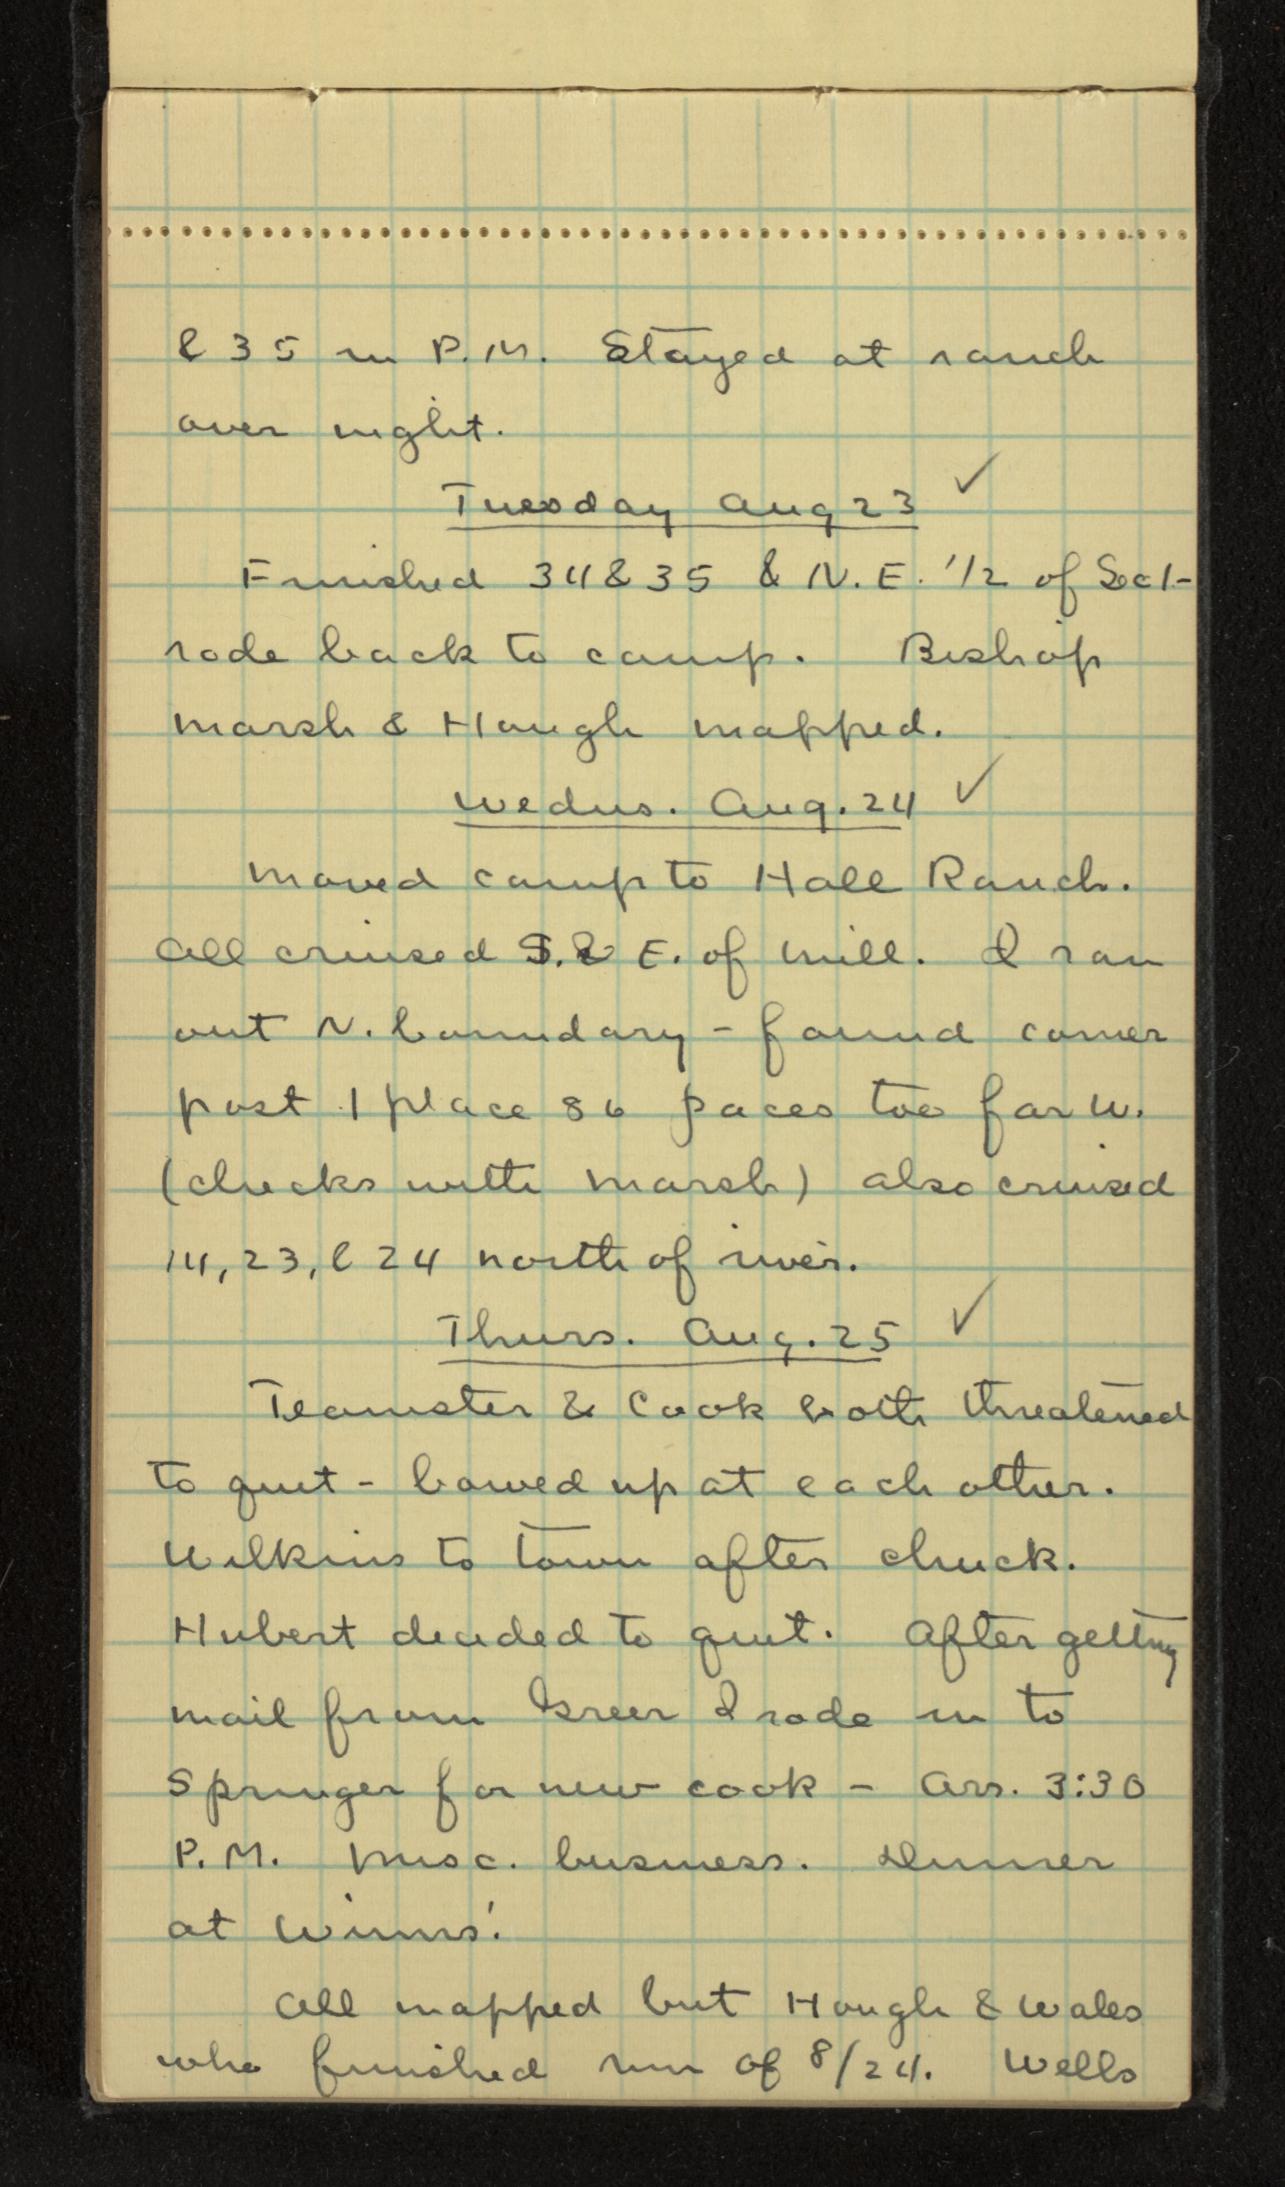 & 35 in P.M. Stayed at ranch
over night.
Tuesday Aug 23 ✓
Finished 34 & 35 & N.E. 1/2 of Sec 1-
rode back to camp. Bishop
Marsh & Hough mapped.
Wednes. Aug. 24 ✓
Moved camp to Hall Ranch.
All cruised S. & E. of mill. I ran
out N. boundary - found corner
post 1 place 86 paces too far W.
(checks with Marsh) also cruised
14, 23, & 24 north of river.
Thurs. Aug. 25 ✓
Teamster & Cook both threatened
to quit - bowed up at each other.
Wilkins to town after chuck.
Hubert decided to quit. After getting
mail from Greer I rode in to
Springer for new cook - Arr. 3:30
P.M. Misc. business. Dinner
at Winns'.
All mapped but Hough & Wales
who finished run of 8/24. Wells